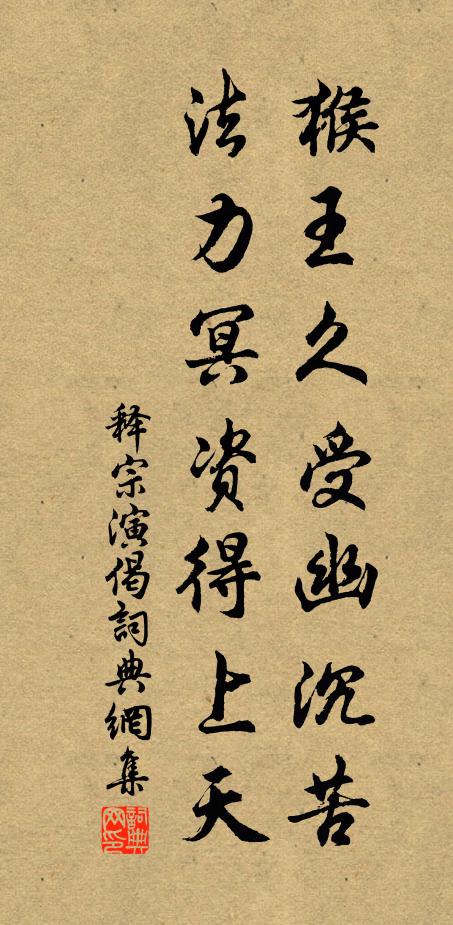 猴王久受幽沉苦
法力冥资得上天
释宗演偈詞典網集
詞典網印